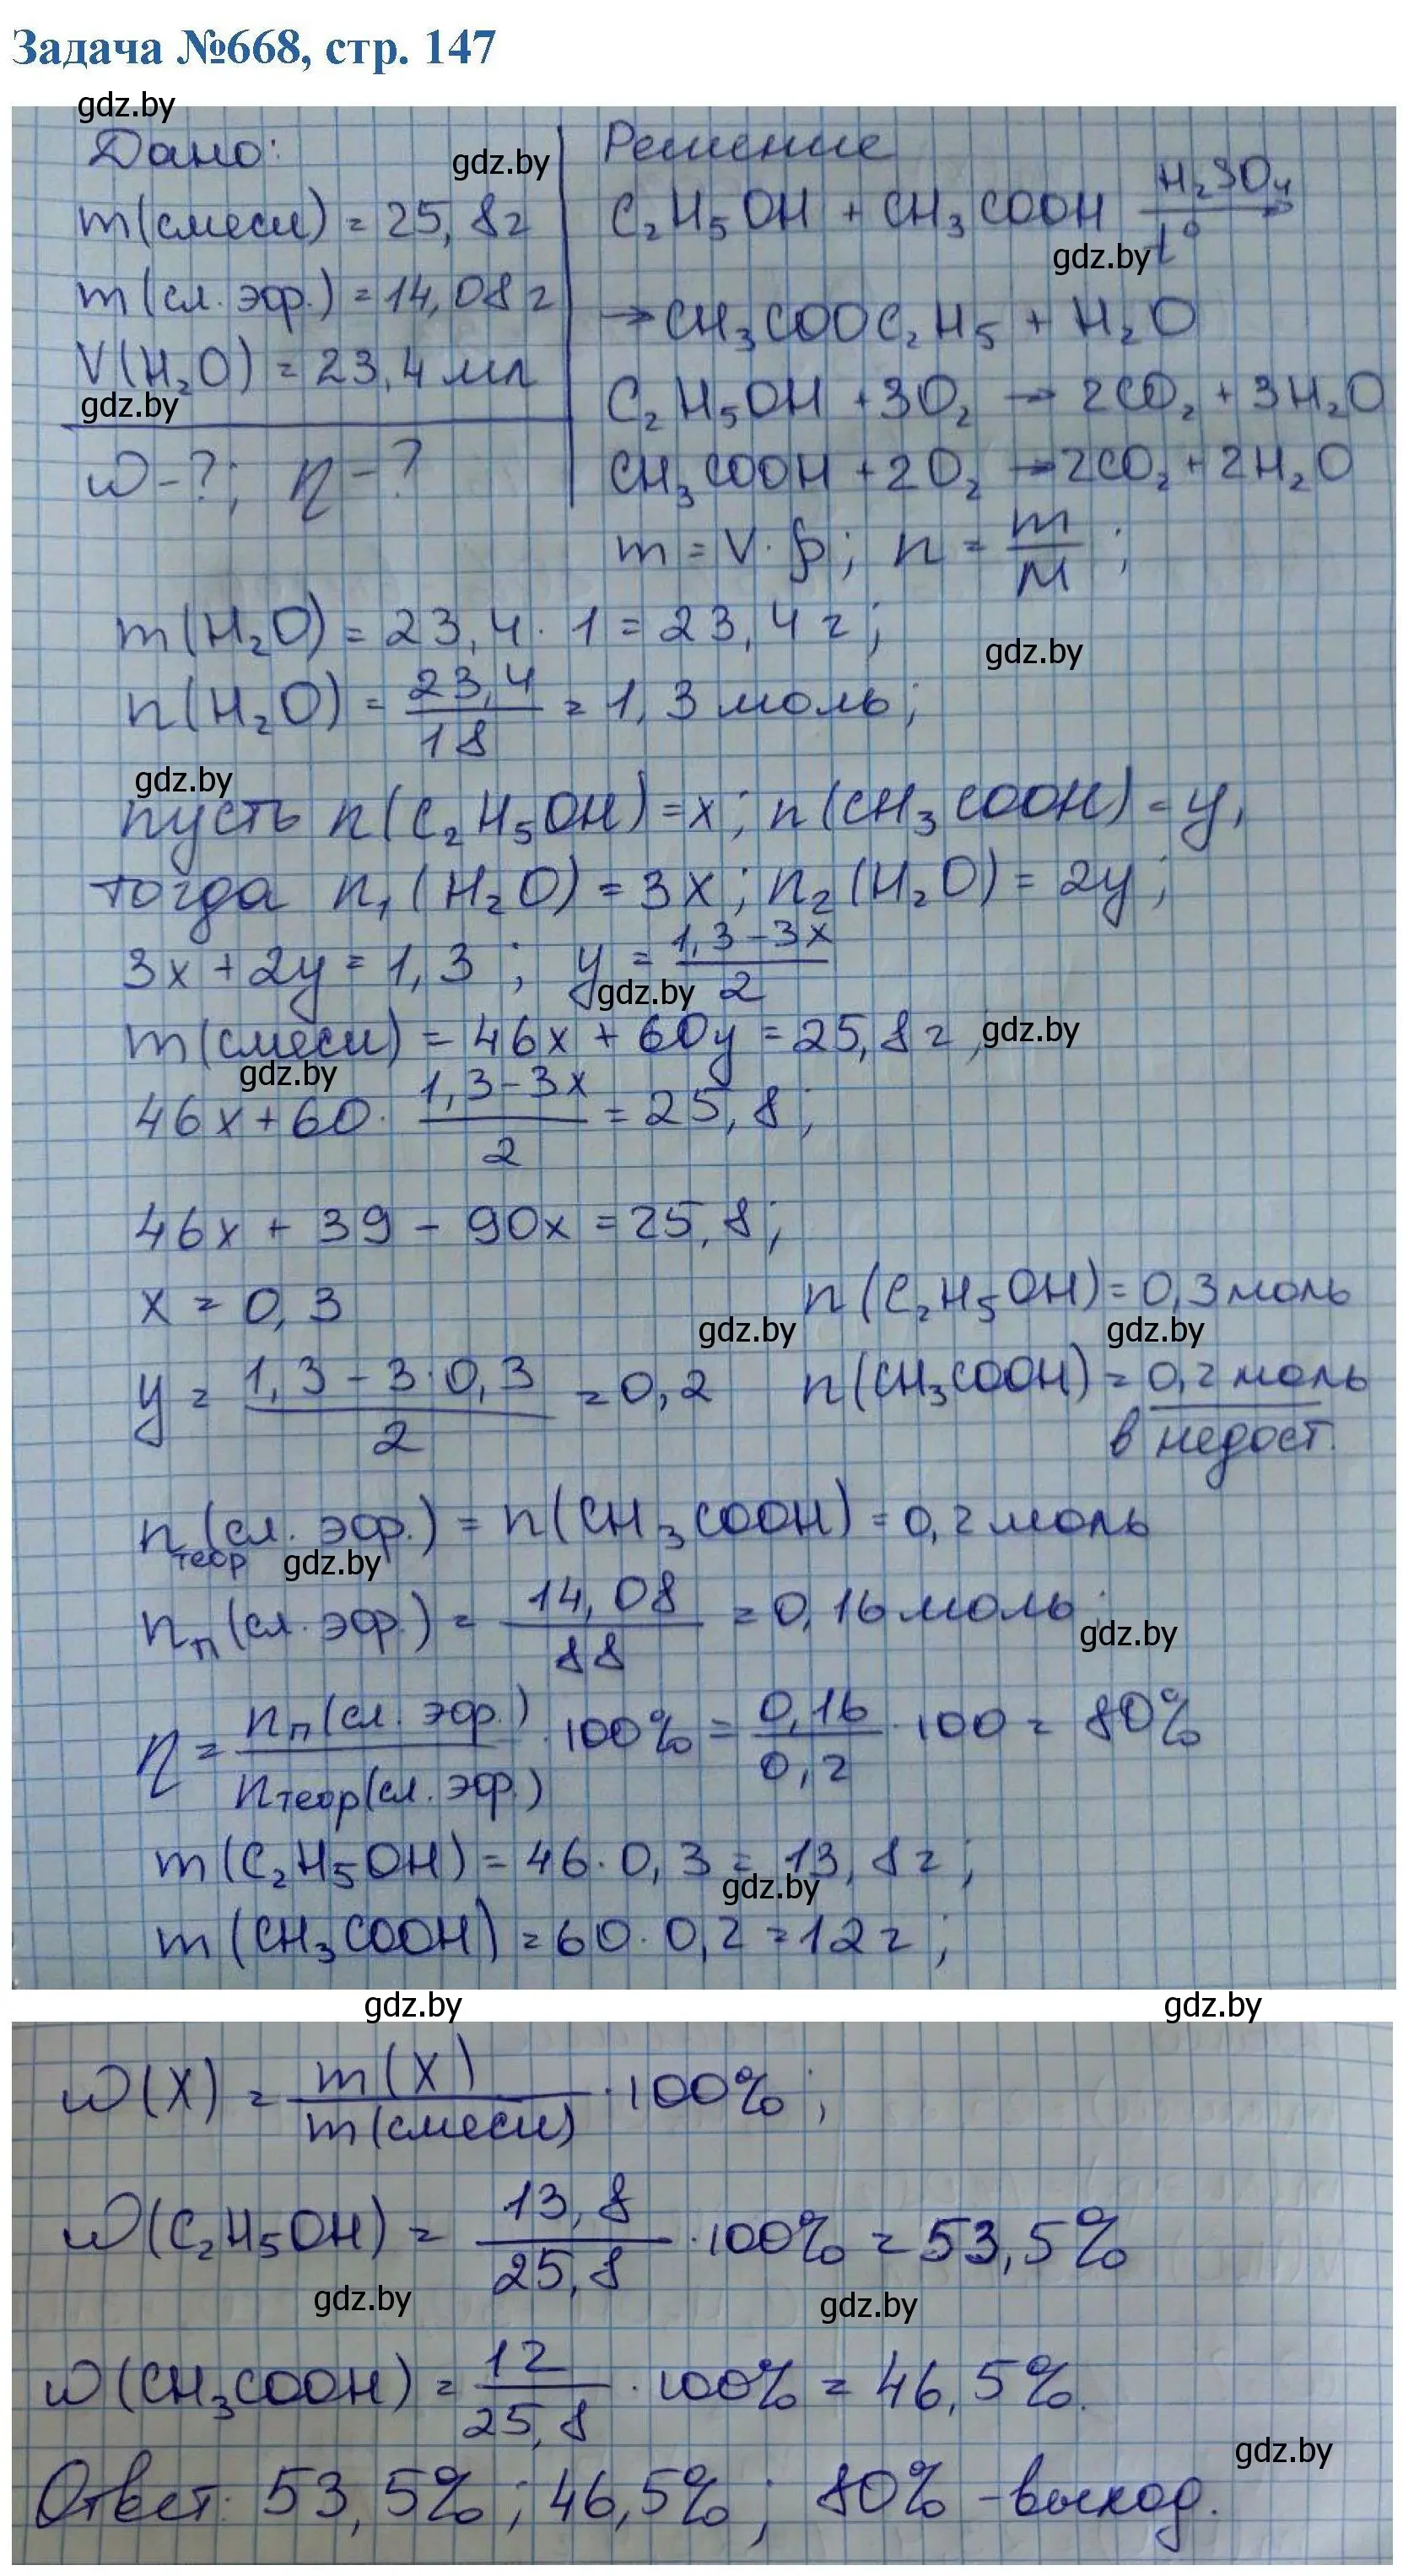 Задача №668, стр. 147
gdz.by
Дано:
gdz.by
Решение
m(смеси) = 25,8г
C₂H₅OH + CH₃COOH H₂SO₄ t° →
gdz.by
m(сл. эфр.) = 14,08г
→ CH₃COOC₂H₅ + H₂O
V(H₂O) = 23,4 мл
gdz.by
C₂H₅OH + 3O₂ → 2CO₂ + 3H₂O
ω-?; η-?
CH₃COOH + 2O₂ → 2CO₂ + 2H₂O
m = V·ρ; n = m/M;
m(H₂O) = 23,4 · 1 = 23,4 г;
gdz.by
n(H₂O) = 23,4/18 = 1,3 моль;
gdz.by
пусть n(C₂H₅OH) = x; n(CH₃COOH) = y,
тогда n₁(H₂O) = 3x; n₂(H₂O) = 2y;
3x + 2y = 1,3; y = (1,3-3x)/2
gdz.by
m(смеси) = 46x + 60y = 25,8 г,
gdz.by
gdz.by
46x + 60 · (1,3-3x)/2 = 25,8;
46x + 39 - 90x = 25,8;
x = 0,3
n(C₂H₅OH) = 0,3 моль
gdz.by
gdz.by
y = (1,3 - 3·0,3)/2 = 0,2
n(CH₃COOH) = 0,2 моль
в недост.
n теор (сл. эфр.) = n(CH₃COOH) = 0,2 моль
gdz.by
nп(сл. эфр.) = 14,08/88 = 0,16 моль;
gdz.by
η = nп(сл. эфр.)/nтеор(сл. эфр.) · 100% = 0,16/0,2 · 100 = 80%
m(C₂H₅OH) = 46 · 0,3 = 13,8 г;
gdz.by
m(CH₃COOH) = 60 · 0,2 = 12 г;
gdz.by
gdz.by
ω(X) = m(X)/m(смеси) · 100%;
ω(C₂H₅OH) = 13,8/25,8 · 100% = 53,5%
gdz.by
gdz.by
ω(CH₃COOH) = 12/25,8 · 100% = 46,5%.
gdz.by
Ответ: 53,5%; 46,5%; 80% - выход.